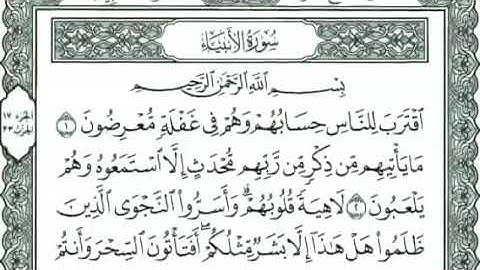 سُورَةُ الأَنبِيَاءِ
بِسْمِ اللَّهِ الرَّحْمَٰنِ الرَّحِيمِ
ٱقْتَرَبَ لِلنَّاسِ حِسَابُهُمْ وَهُمْ فِي غَفْلَةٍ مُّعْرِضُونَ ١
مَا يَأْتِيهِم مِّن ذِكْرٍ مِّن رَّبِّهِم مُّحْدَثٍ إِلَّا ٱسْتَمَعُوهُ وَهُمْ
يَلْعَبُونَ ٢ لَاهِيَةً قُلُوبُهُمْ ۗ وَأَسَرُّوا۟ ٱلنَّجْوَى ٱلَّذِينَ
ظَلَمُوا۟ هَلْ هَٰذَآ إِلَّا بَشَرٌ مِّثْلُكُمْ ۖ أَفَتَأْتُونَ ٱلسِّحْرَ وَأَنتُمْ
الجزء ١٧